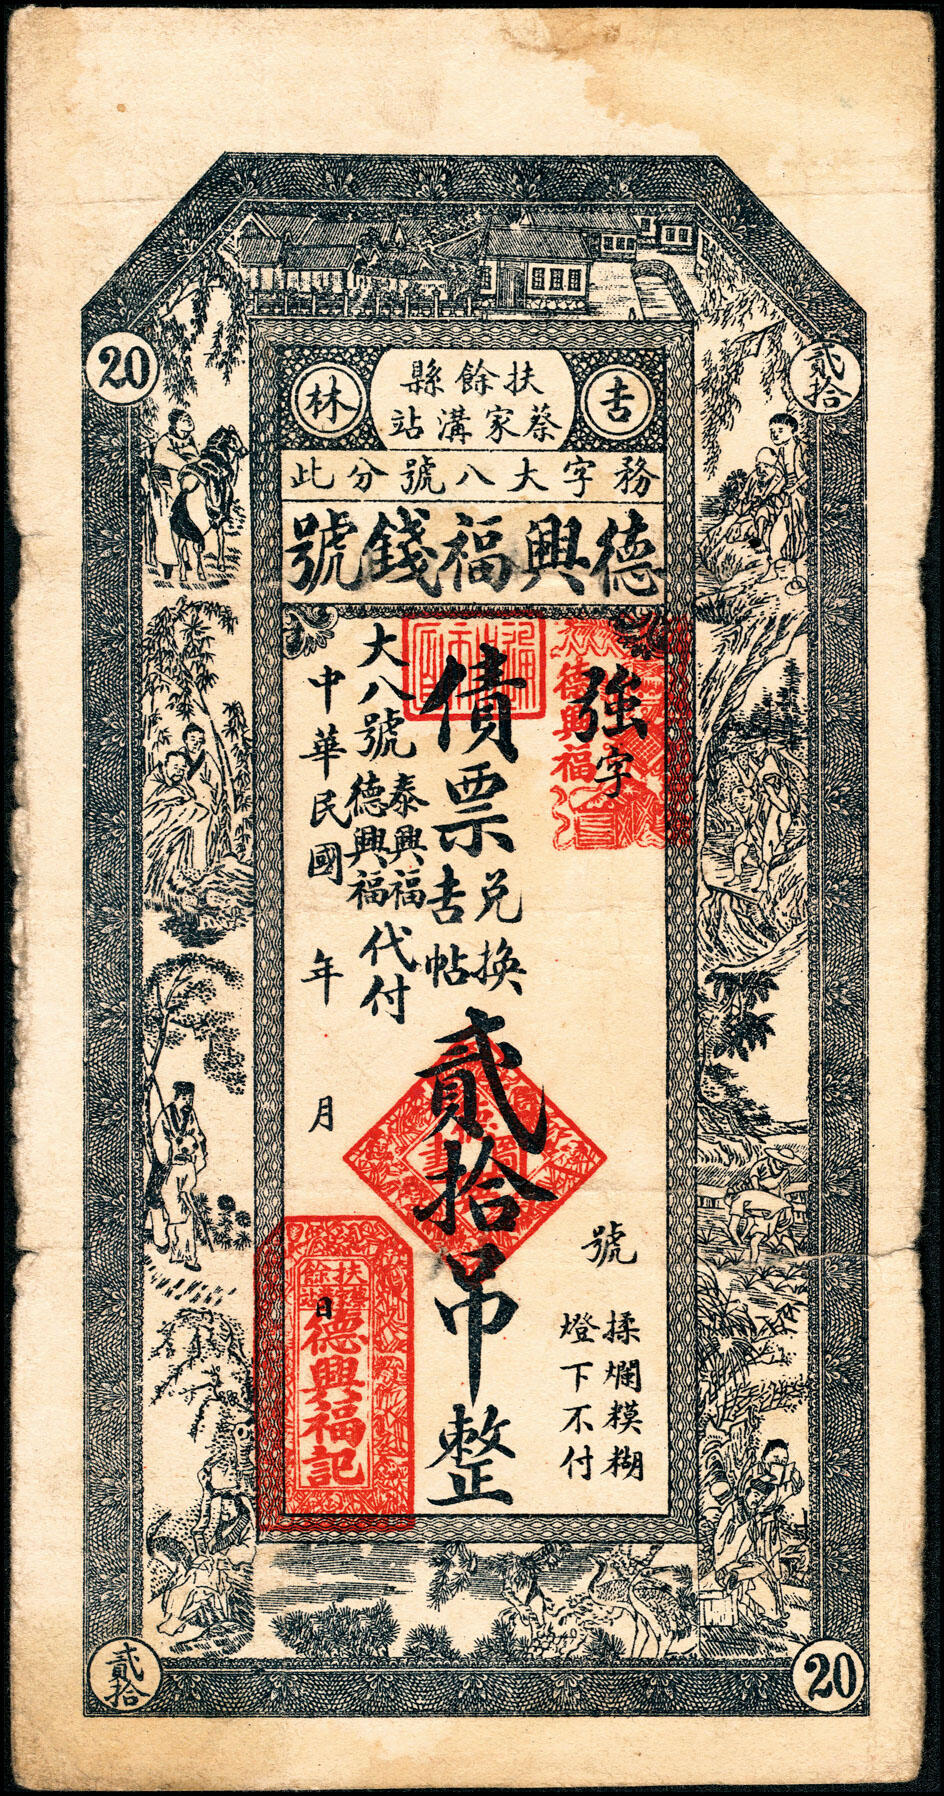 20
貳拾
𠮷林
扶餘縣
蔡家溝站
務字大八號分此
德興福錢號
強字 號
德興福
揉爛糢糊
燈下不付
債票兌換𠮷帖貳拾吊整
大八號泰興福德興福代付
中華民國 年 月 日
扶餘
德興福記
貳拾
20